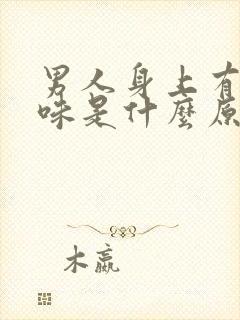 男人身上有
味是什麼原
木嬴